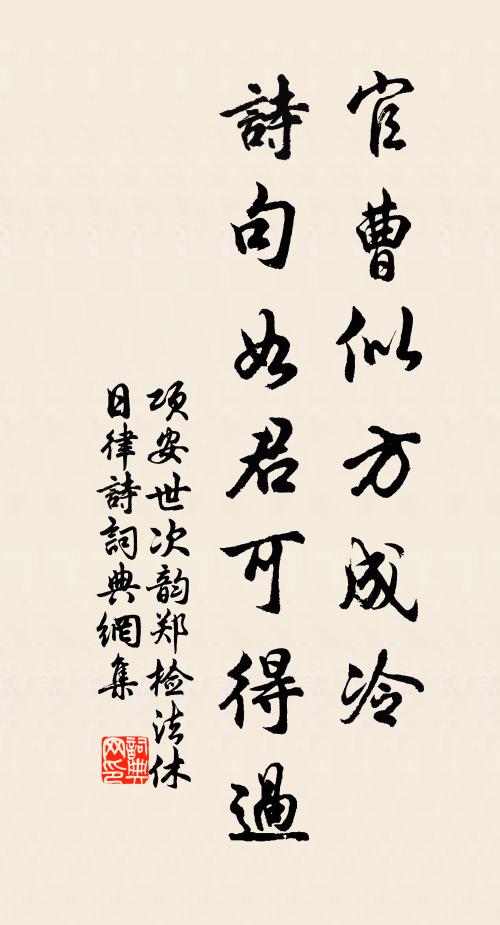 官曹似方成冷
詩句如君可得過
項安世次韵郑检法休
日律詩詞典網集
詞典网印